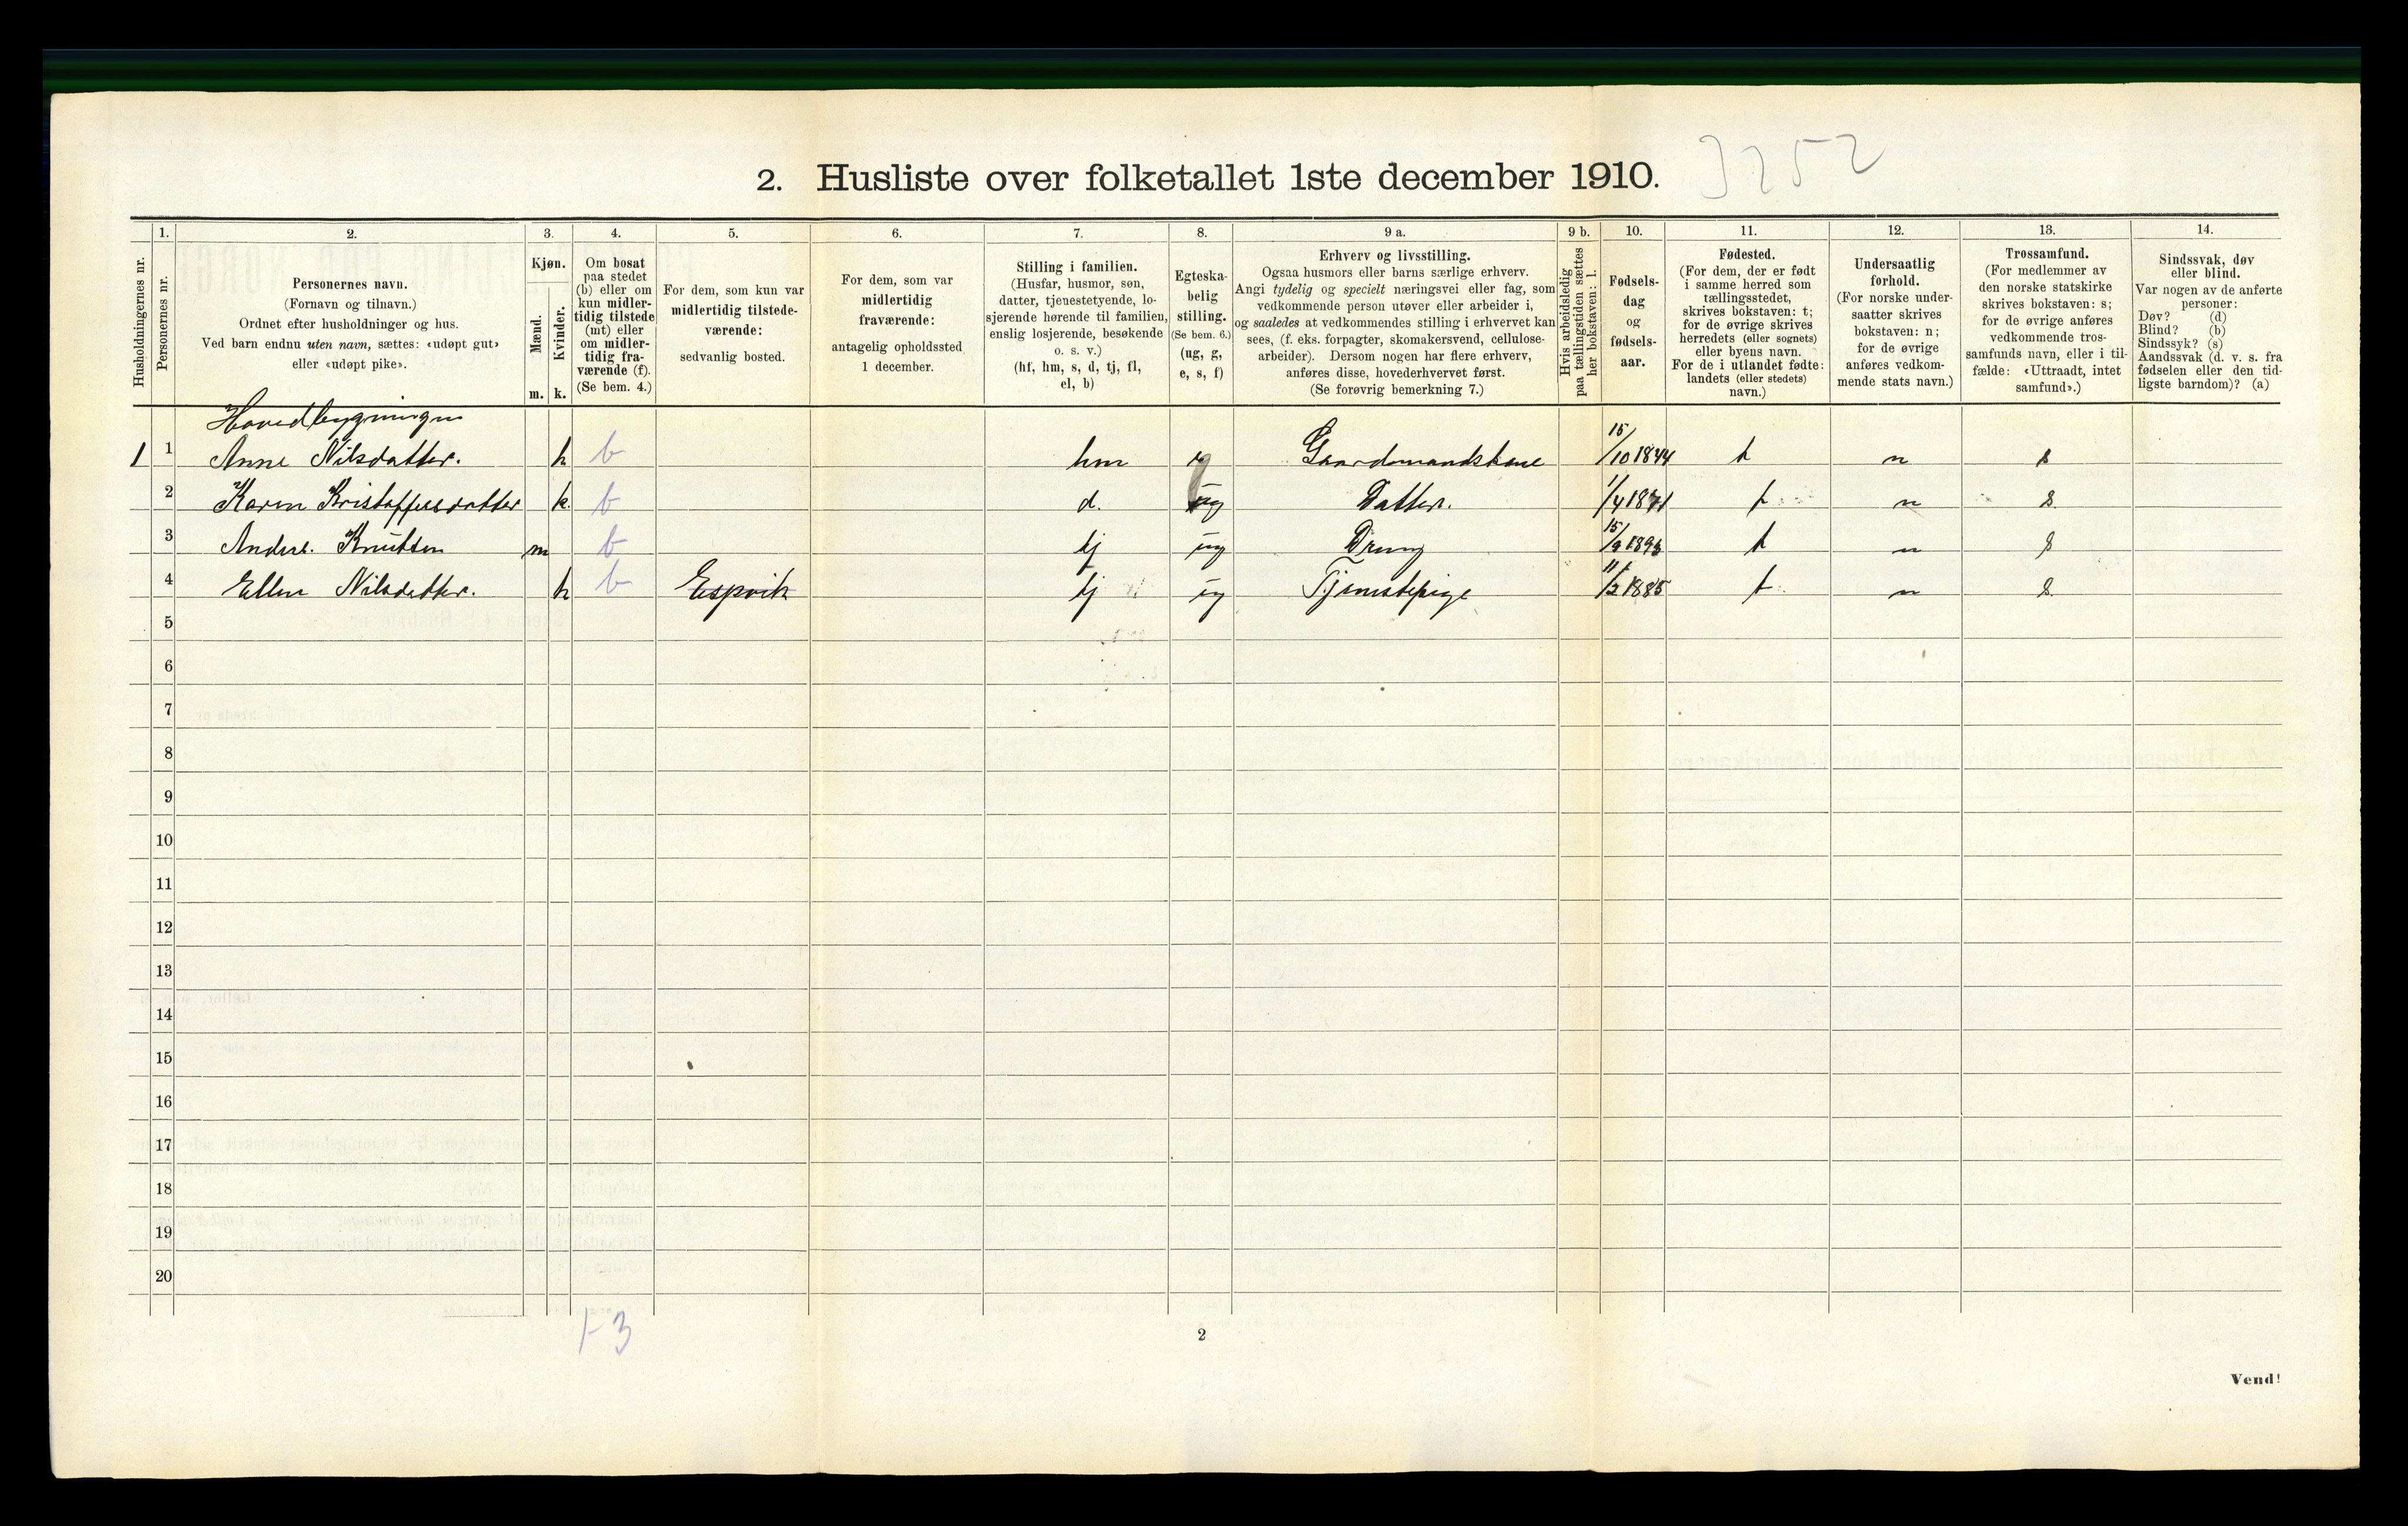 3252
2. Husliste over folketallet 1ste december 1910.
Husholdningernes nr.
1.
Personernes nr.
2.
Personernes navn.
(Fornavn og tilnavn.)
Ordnet efter husholdninger og hus.
Ved barn endnu uten navn, sættes: «udøpt gut»
eller «udøpt pike».
3.
Kjøn.
Mænd.
Kvinder.
m. k.
4.
Om bosat
paa stedet
(b) eller om
kun midler-
tidig tilstede
(mt) eller
om midler-
tidig fra-
værende (f).
(Se bem. 4.)
5.
For dem, som kun var
midlertidig tilstede-
værende:
sedvanlig bosted.
6.
For dem, som var
midlertidig
fraværende:
antagelig opholdssted
1 december.
7.
Stilling i familien.
(Husfar, husmor, søn,
datter, tjenestetyende, lo-
sjerende hørende til familien,
enslig losjerende, besøkende
o. s. v.)
(hf, hm, s, d, tj, fl,
el, b)
8.
Egteska-
belig
stilling.
(Se bem. 6.)
(ug, g,
e, s, f)
9 a.
Erhverv og livsstilling.
Ogsaa husmors eller barns særlige erhverv.
Angi tydelig og specielt næringsvei eller fag, som
vedkommende person utøver eller arbeider i,
og saaledes at vedkommendes stilling i erhvervet kan
sees, (f. eks. forpagter, skomakersvend, cellulose-
arbeider). Dersom nogen har flere erhverv,
anføres disse, hovederhvervet først.
(Se forøvrig bemerkning 7.)
9 b.
Hvis arbeidsledig
paa tællingstiden sættes
her bokstaven: l.
10.
Fødsels-
dag
og
fødsels-
aar.
11.
Fødested.
(For dem, der er født
i samme herred som
tællingsstedet,
skrives bokstaven: t;
for de øvrige skrives
herredets (eller sognets)
eller byens navn.
For de i utlandet fødte:
landets (eller stedets)
navn.)
12.
Undersaatlig
forhold.
(For norske under-
saatter skrives
bokstaven: n;
for de øvrige
anføres vedkom-
mende stats navn.)
13.
Trossamfund.
(For medlemmer av
den norske statskirke
skrives bokstaven: s;
for de øvrige anføres
vedkommende tros-
samfunds navn, eller i til-
fælde: «Uttraadt, intet
samfund».)
14.
Sindssvak, døv
eller blind.
Var nogen av de anførte
personer:
Døv? (d)
Blind? (b)
Sindssyk? (s)
Aandssvak (d. v. s. fra
fødselen eller den tid-
ligste barndom)? (a)
Hovedbygningen
1 1 Anne Nilsdatter. k b hm Gaardmandskone 15/10 1844 t n s
2 Karen Kristoffersdatter k. b d. ug Datter. 1/4 1871 t n s
3 Anders. Knutsen m b tj ug Dreng 15/9 1893 t n s
4 Ellen Nilsdatter. k b Espvik tj ug Tjenestepige 11/2 1885 t n s.
5
6
7
8
9
10
11
12
13
14
15
16
17
18
19
20
1-3
2
Vend!